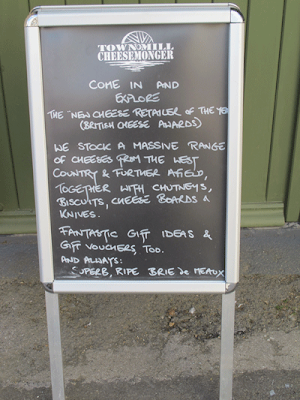 TOWN MILL
CHEESEMONGER
COME IN AND
EXPLORE
THE "NEW CHEESE RETAILER OF THE YE
(BRITISH CHEESE AWARDS)
WE STOCK A MASSIVE RANGE
OF CHEESES FROM THE WEST
COUNTRY & FURTHER AFIELD,
TOGETHER WITH CHUTNEYS,
BISCUITS, CHEESE BOARDS &
KNIVES.
FANTASTIC GIFT IDEAS &
GIFT VOUCHERS, TOO.
AND ALWAYS:
SUPERB, RIPE BRIE de MEAUX